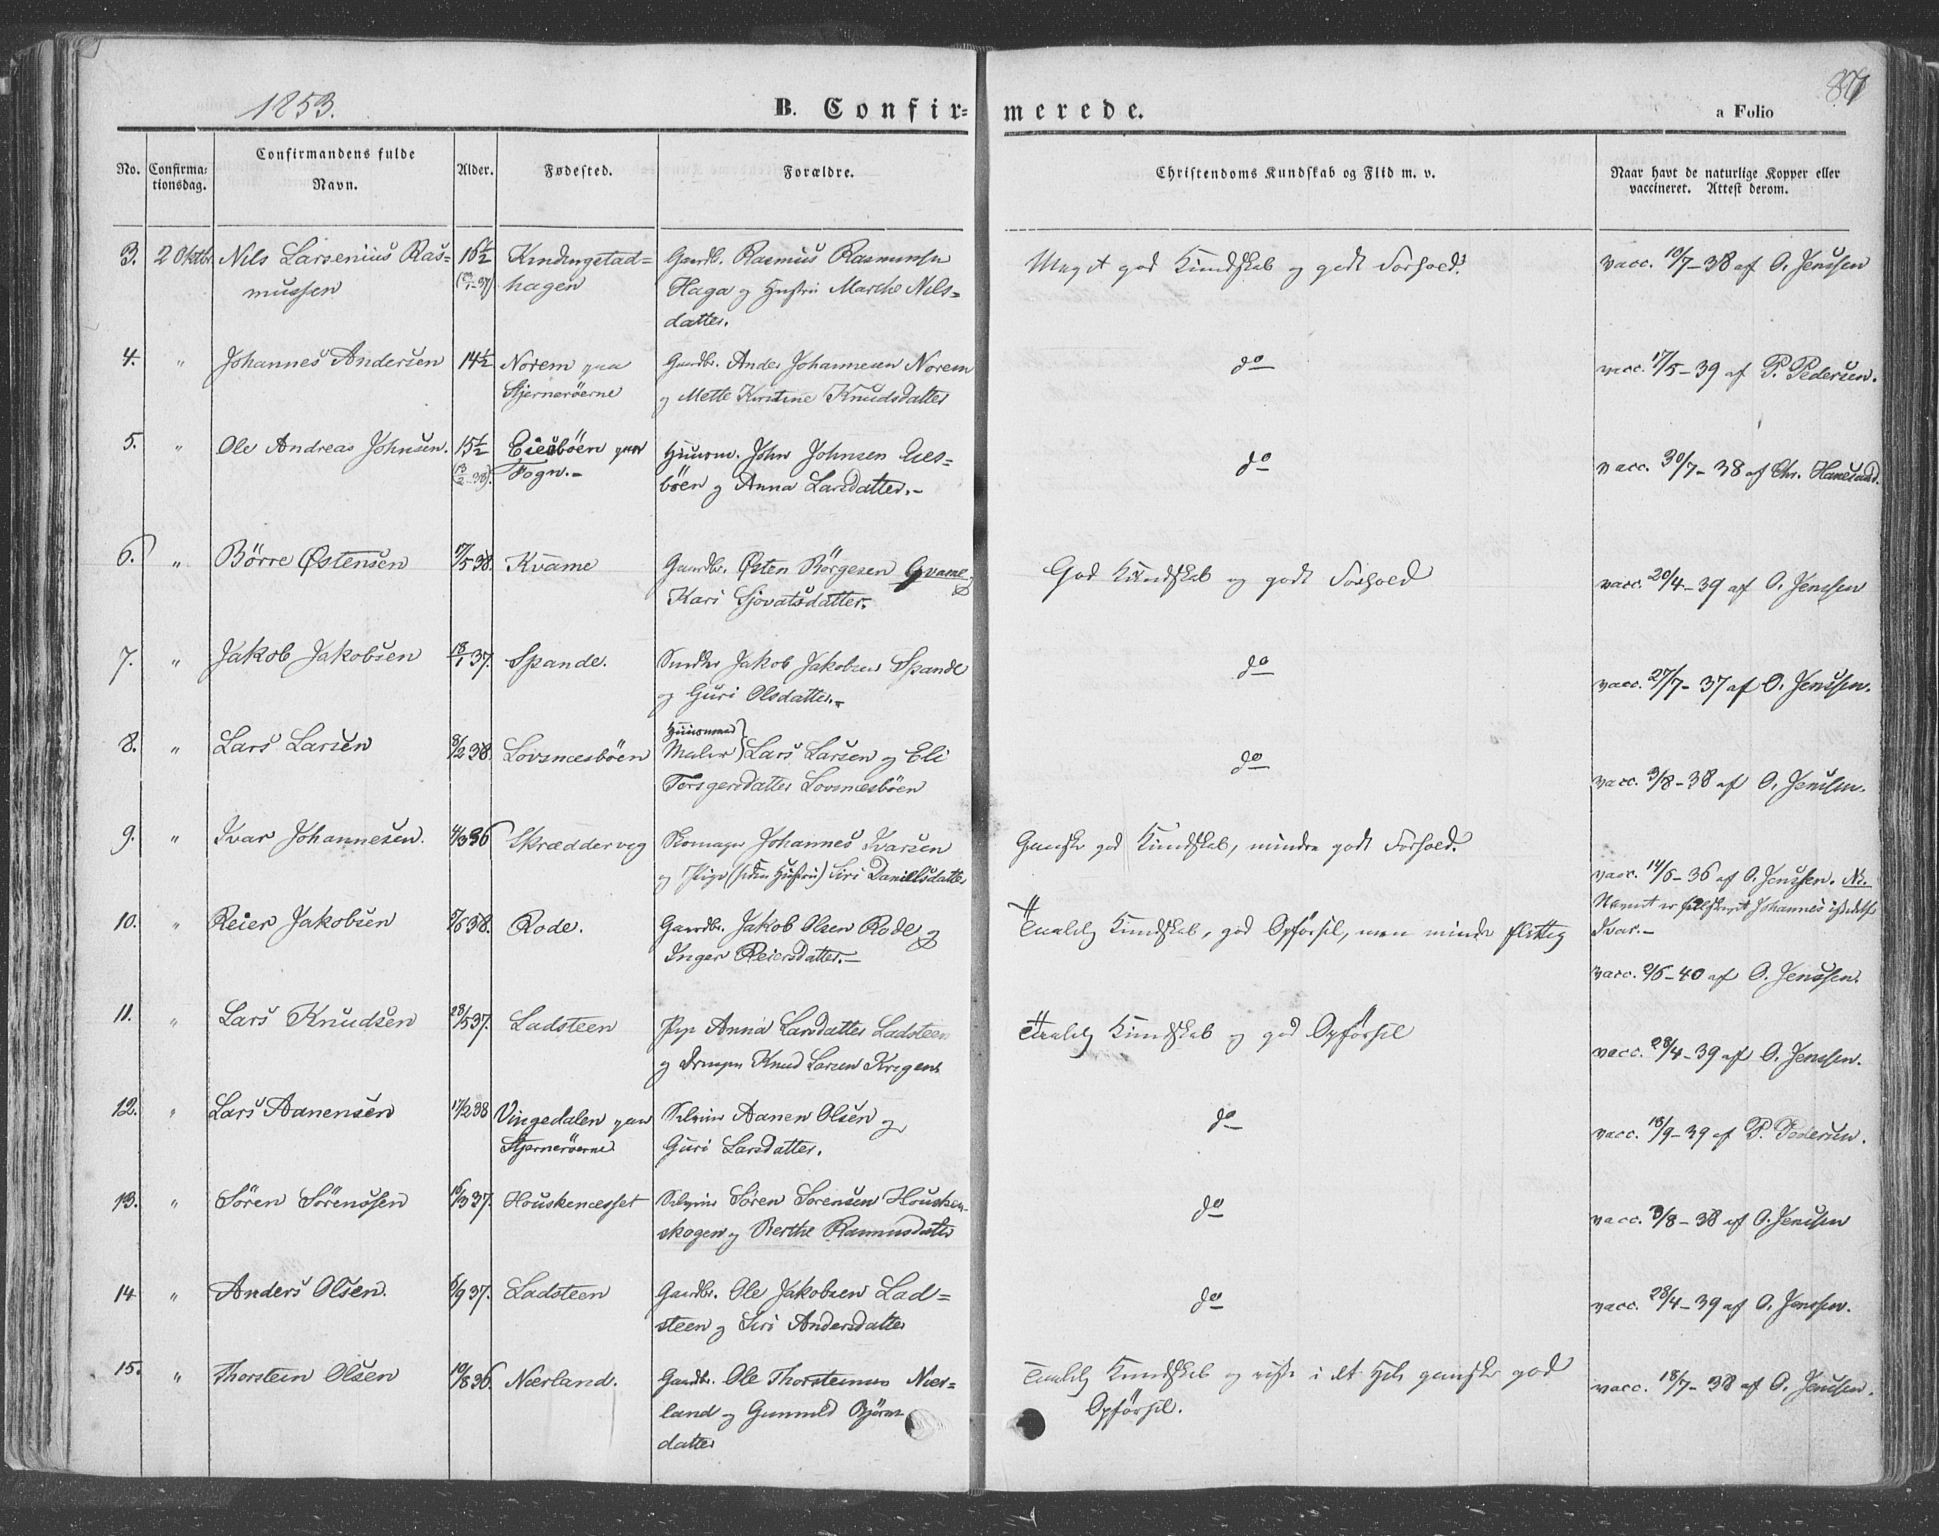 1853.
B. Confir=
merede.
a Folio
No.
Confirma=
tionsdag.
Confirmandens fulde
Navn.
Alder.
Fødested.
Forældre.
Christendoms Kundskab og Flid m. v.
Naar havt de naturlige Kopper eller
vaccineret. Attest derom.
3. 2 Oktbr. Nils Larsenius Ras= 16½ Gaardbr. Rasmus Rasmussen Meget god Kundskab og godt Forhold. vacc. 19/7-38 af O. Jenssen
mussen hagen Haga og Hustru Marthe Nils=
datter.
4. " Johannes Andersen 14½ Norem paa Gaardbr. Ander Johannesen Norem do vacc. 17/5-39 af P. Pedersen.
Stjernerøerne og Mette Kirstine Knudsdatter
5. " Ole Andreas Johnsen. 15½ Eiesbøen paa Huusm. John Johnsen Eies= do vacc. 30/7-38 af Chr. Hanesand.
Fogn.- bøen og Anna Larsdatter.-
6. " Børre Østensen 17/5 38. Kvame Gaardbr. Østen Børgesen Qvame God Kundskab og godt Forhold vacc. 20/4-39 af O. Jenssen
og Kari Sjovatsdatter.
7. " Jakob Jakobsen 18/1 37. Spande. Jakob Jakobsen Spande do vacc. 27/7-37 af O. Jenssen.
og Guri Olsdatter.-
8. " Lars Larsen 8/2 38. Lovsnæsbøen Huusmand
Maler } Lars Larsen og Eli do vacc. 3/8-38 af O. Jenssen.
Torgersdatter Lovsnæsbøen
9. " Ivar Johannesen. 4/3 36 Skrædderveg Skomager Johannes Ivarsen Ganske god Kundskab, mindre godt Forhold. vacc. 14/6-36 af O. Jenssen. Nb.
og Pige (siden Hustru) Siri Danielsdatter Navnet er Johannes istedetfor
Ivar.-
10. " Reier Jakobsen 38. Rode. Gaardbr. Jakob Olsen Rode og Taalelig Kundskab, god Opførsel, men mindre flittig
Inger Reiersdatter.- vacc. 2/6-40 af O. Jenssen.
11. " Lars Knudsen 28/5 37. Ladsteen Pige Anna Larsdatter Ladsteen Taalelig Kundskab og god Opførsel vacc. 28/4-39 af O. Jenssen.
og Knud Larsen
12. " Lars Aanensen 17/2 38 Vingedalen paa Selveier Aanen Olsen og do vacc. 18/9-39 af P. Pedersen.
Stjernerøerne Guri Larsdatter.
13. " Søren Sørenssen 16/3 37. Houskenæsset Selveier Søren Sørensen Housken= do vacc. 3/8-38 af O. Jenssen
skogen og Berthe Rasmusdatter
14 " Anders Olsen. 6/9 37. Ladsteen Gaardbr. Ole Jakobsen Lad= do vacc. 28/4-39 af O. Jenssen.
steen og Siri Andersdatter
15. " Thorstein Olsen 10/8 36. Nærland. Gaardbr. Ole Thorsteinsen Nær= Taalelig Kundskab og i det Hele ganske god vacc. 18/7-38 af O. Jenssen.
land og Gunnild Bjørns Opførsel.
datter